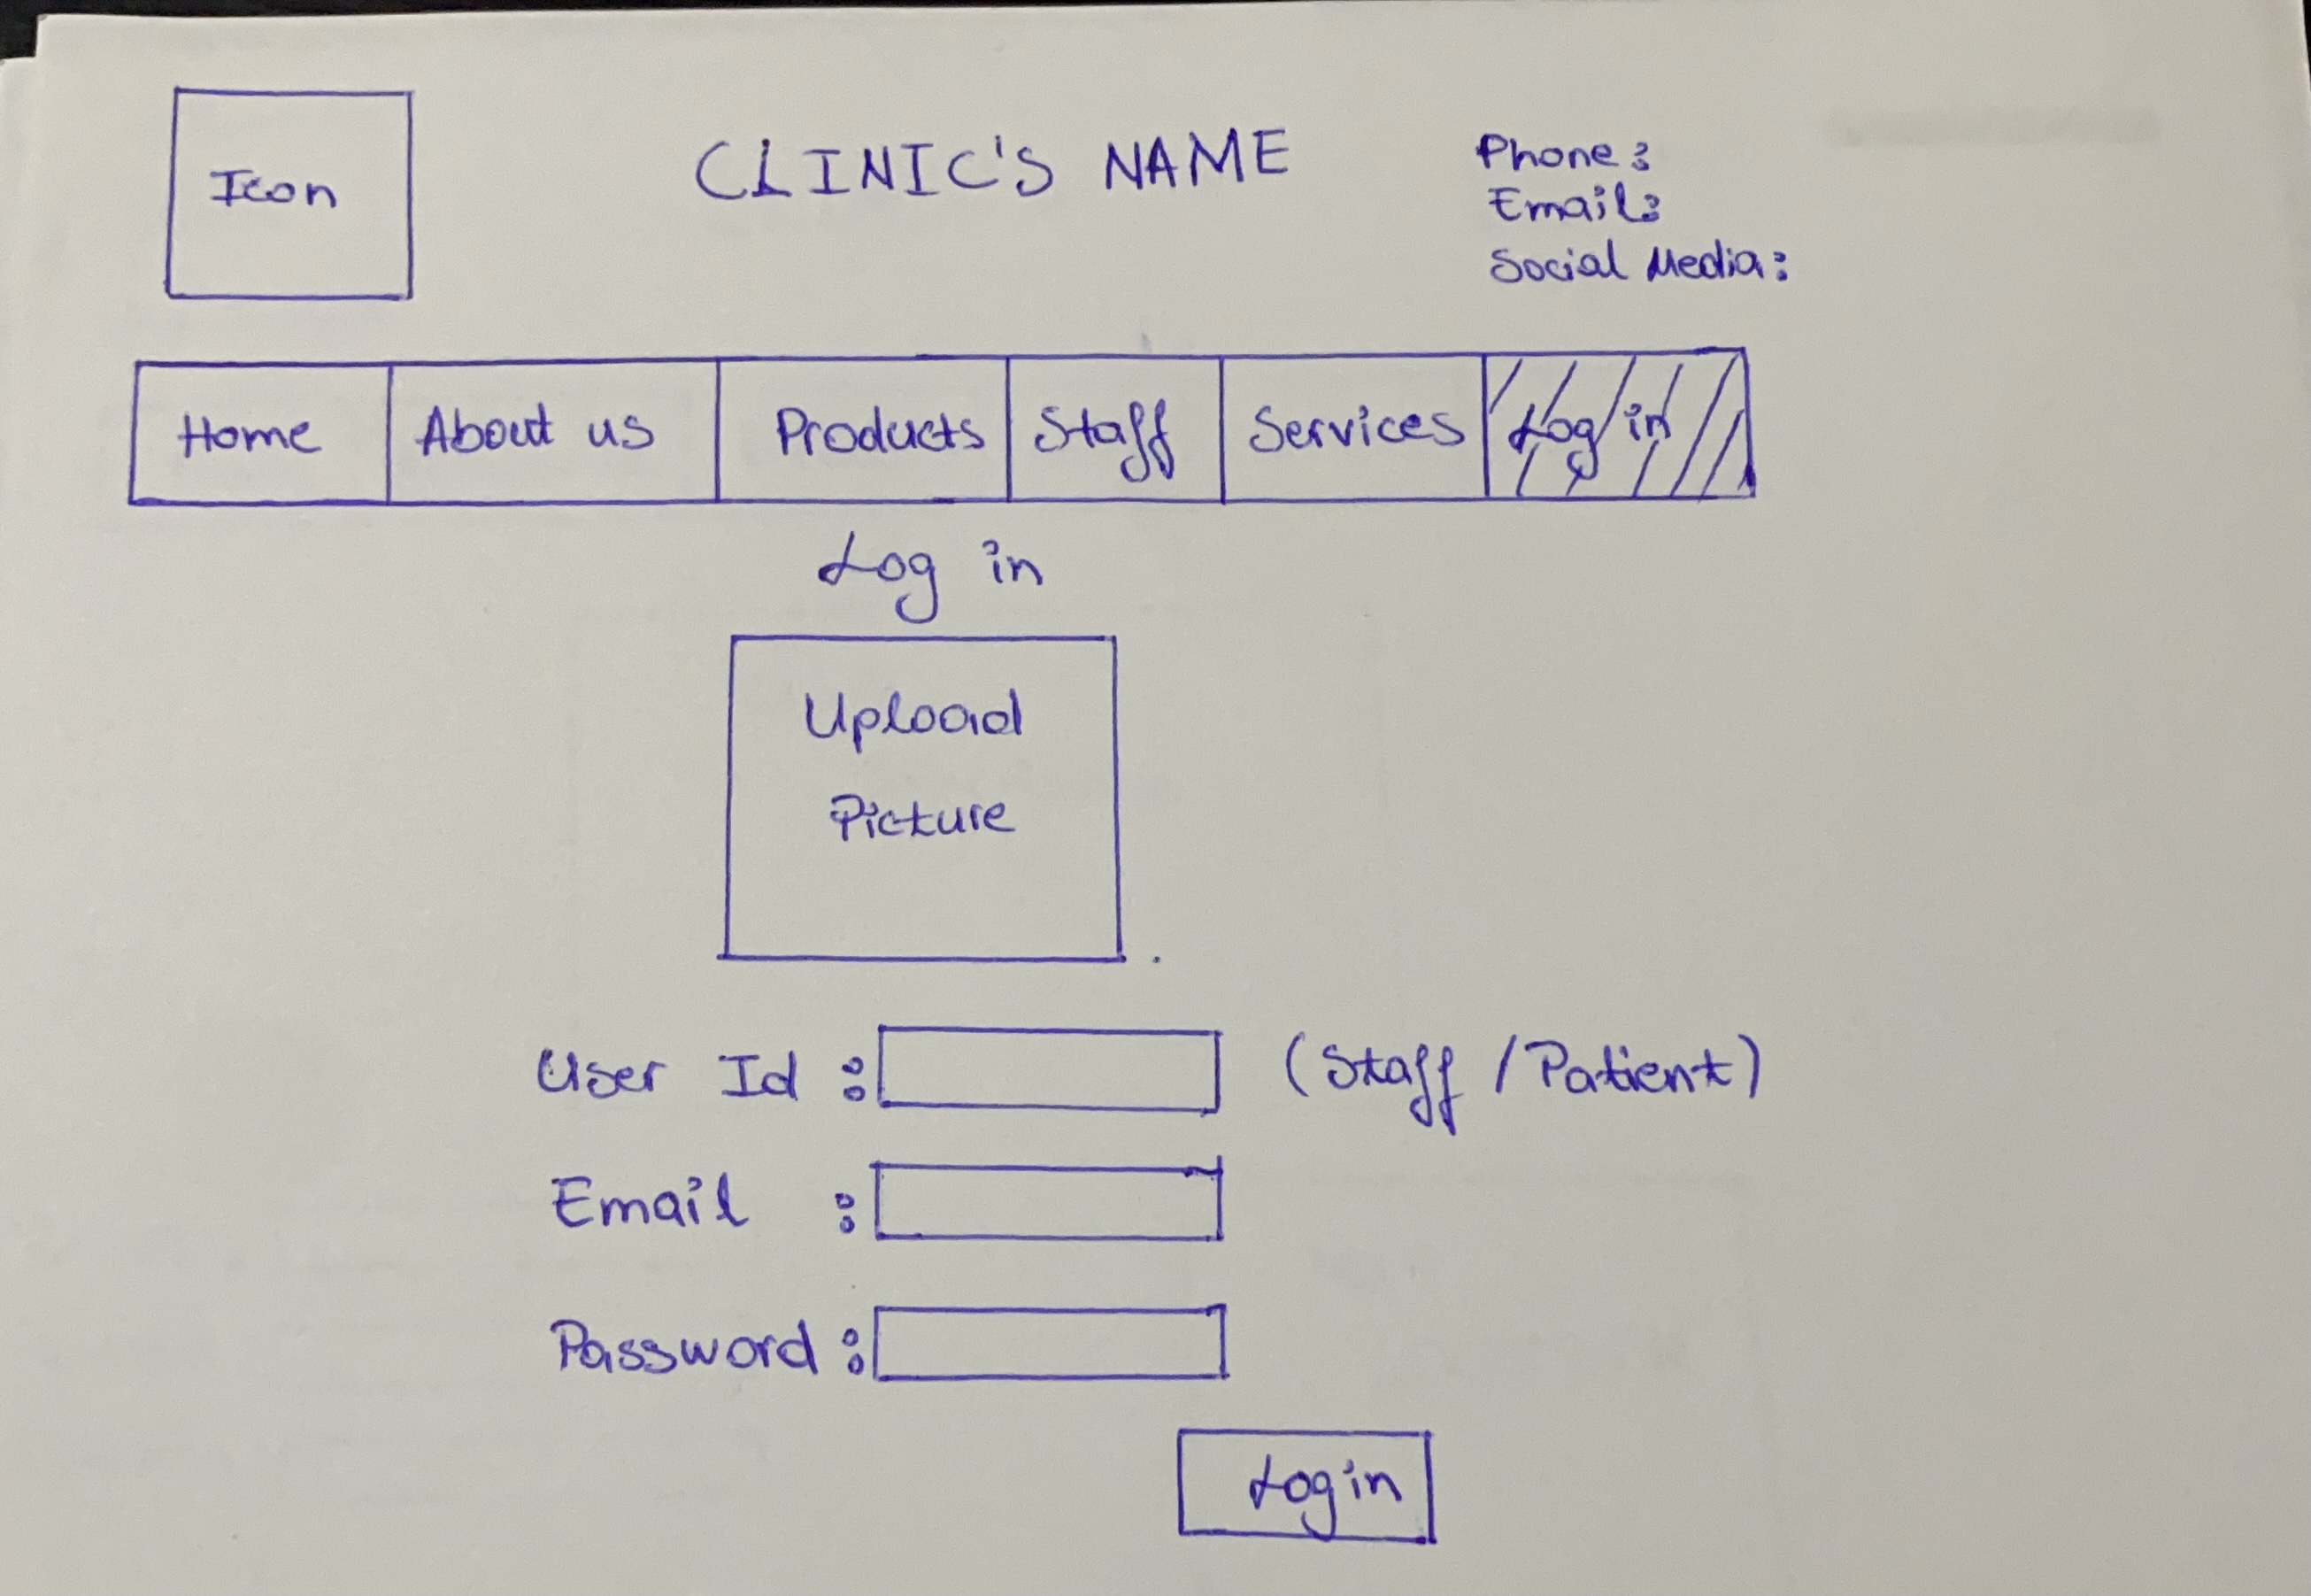 Icon
CLINIC'S NAME
Phone:
Email:
Social Media:
Home About us Products Staff Services Log in
Log in
Upload
Picture
User Id : (Staff / Patient)
Email :
Password :
Login